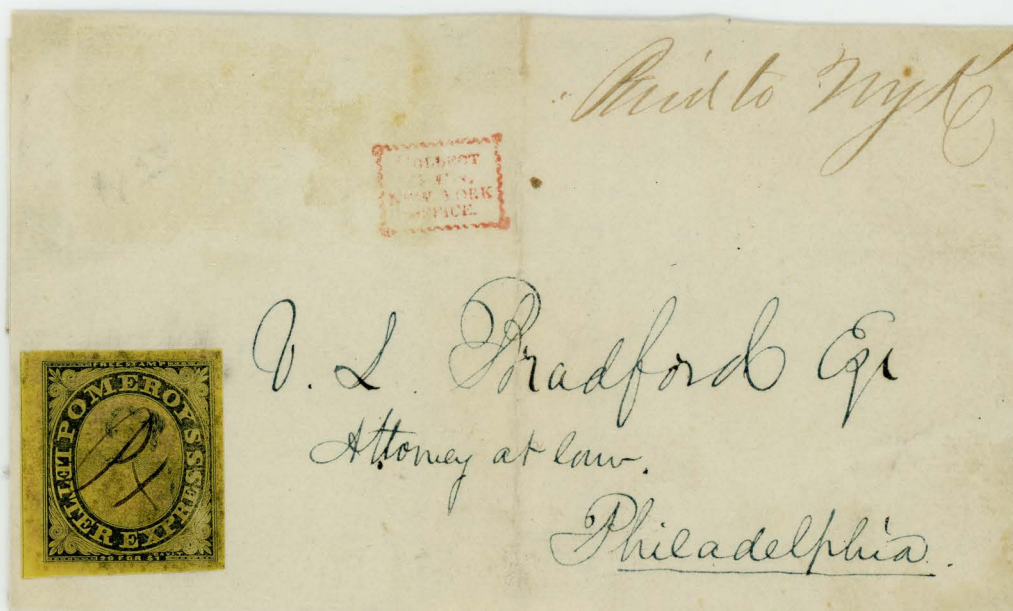 Paid to NYk
COLLECT
NEW YORK
OFFICE.
V. L. Bradford Eqr
Attorney at law.
Philadelphia
FREE STAMP
POMEROY'S LETTER EXPRESS
20 FOR $1